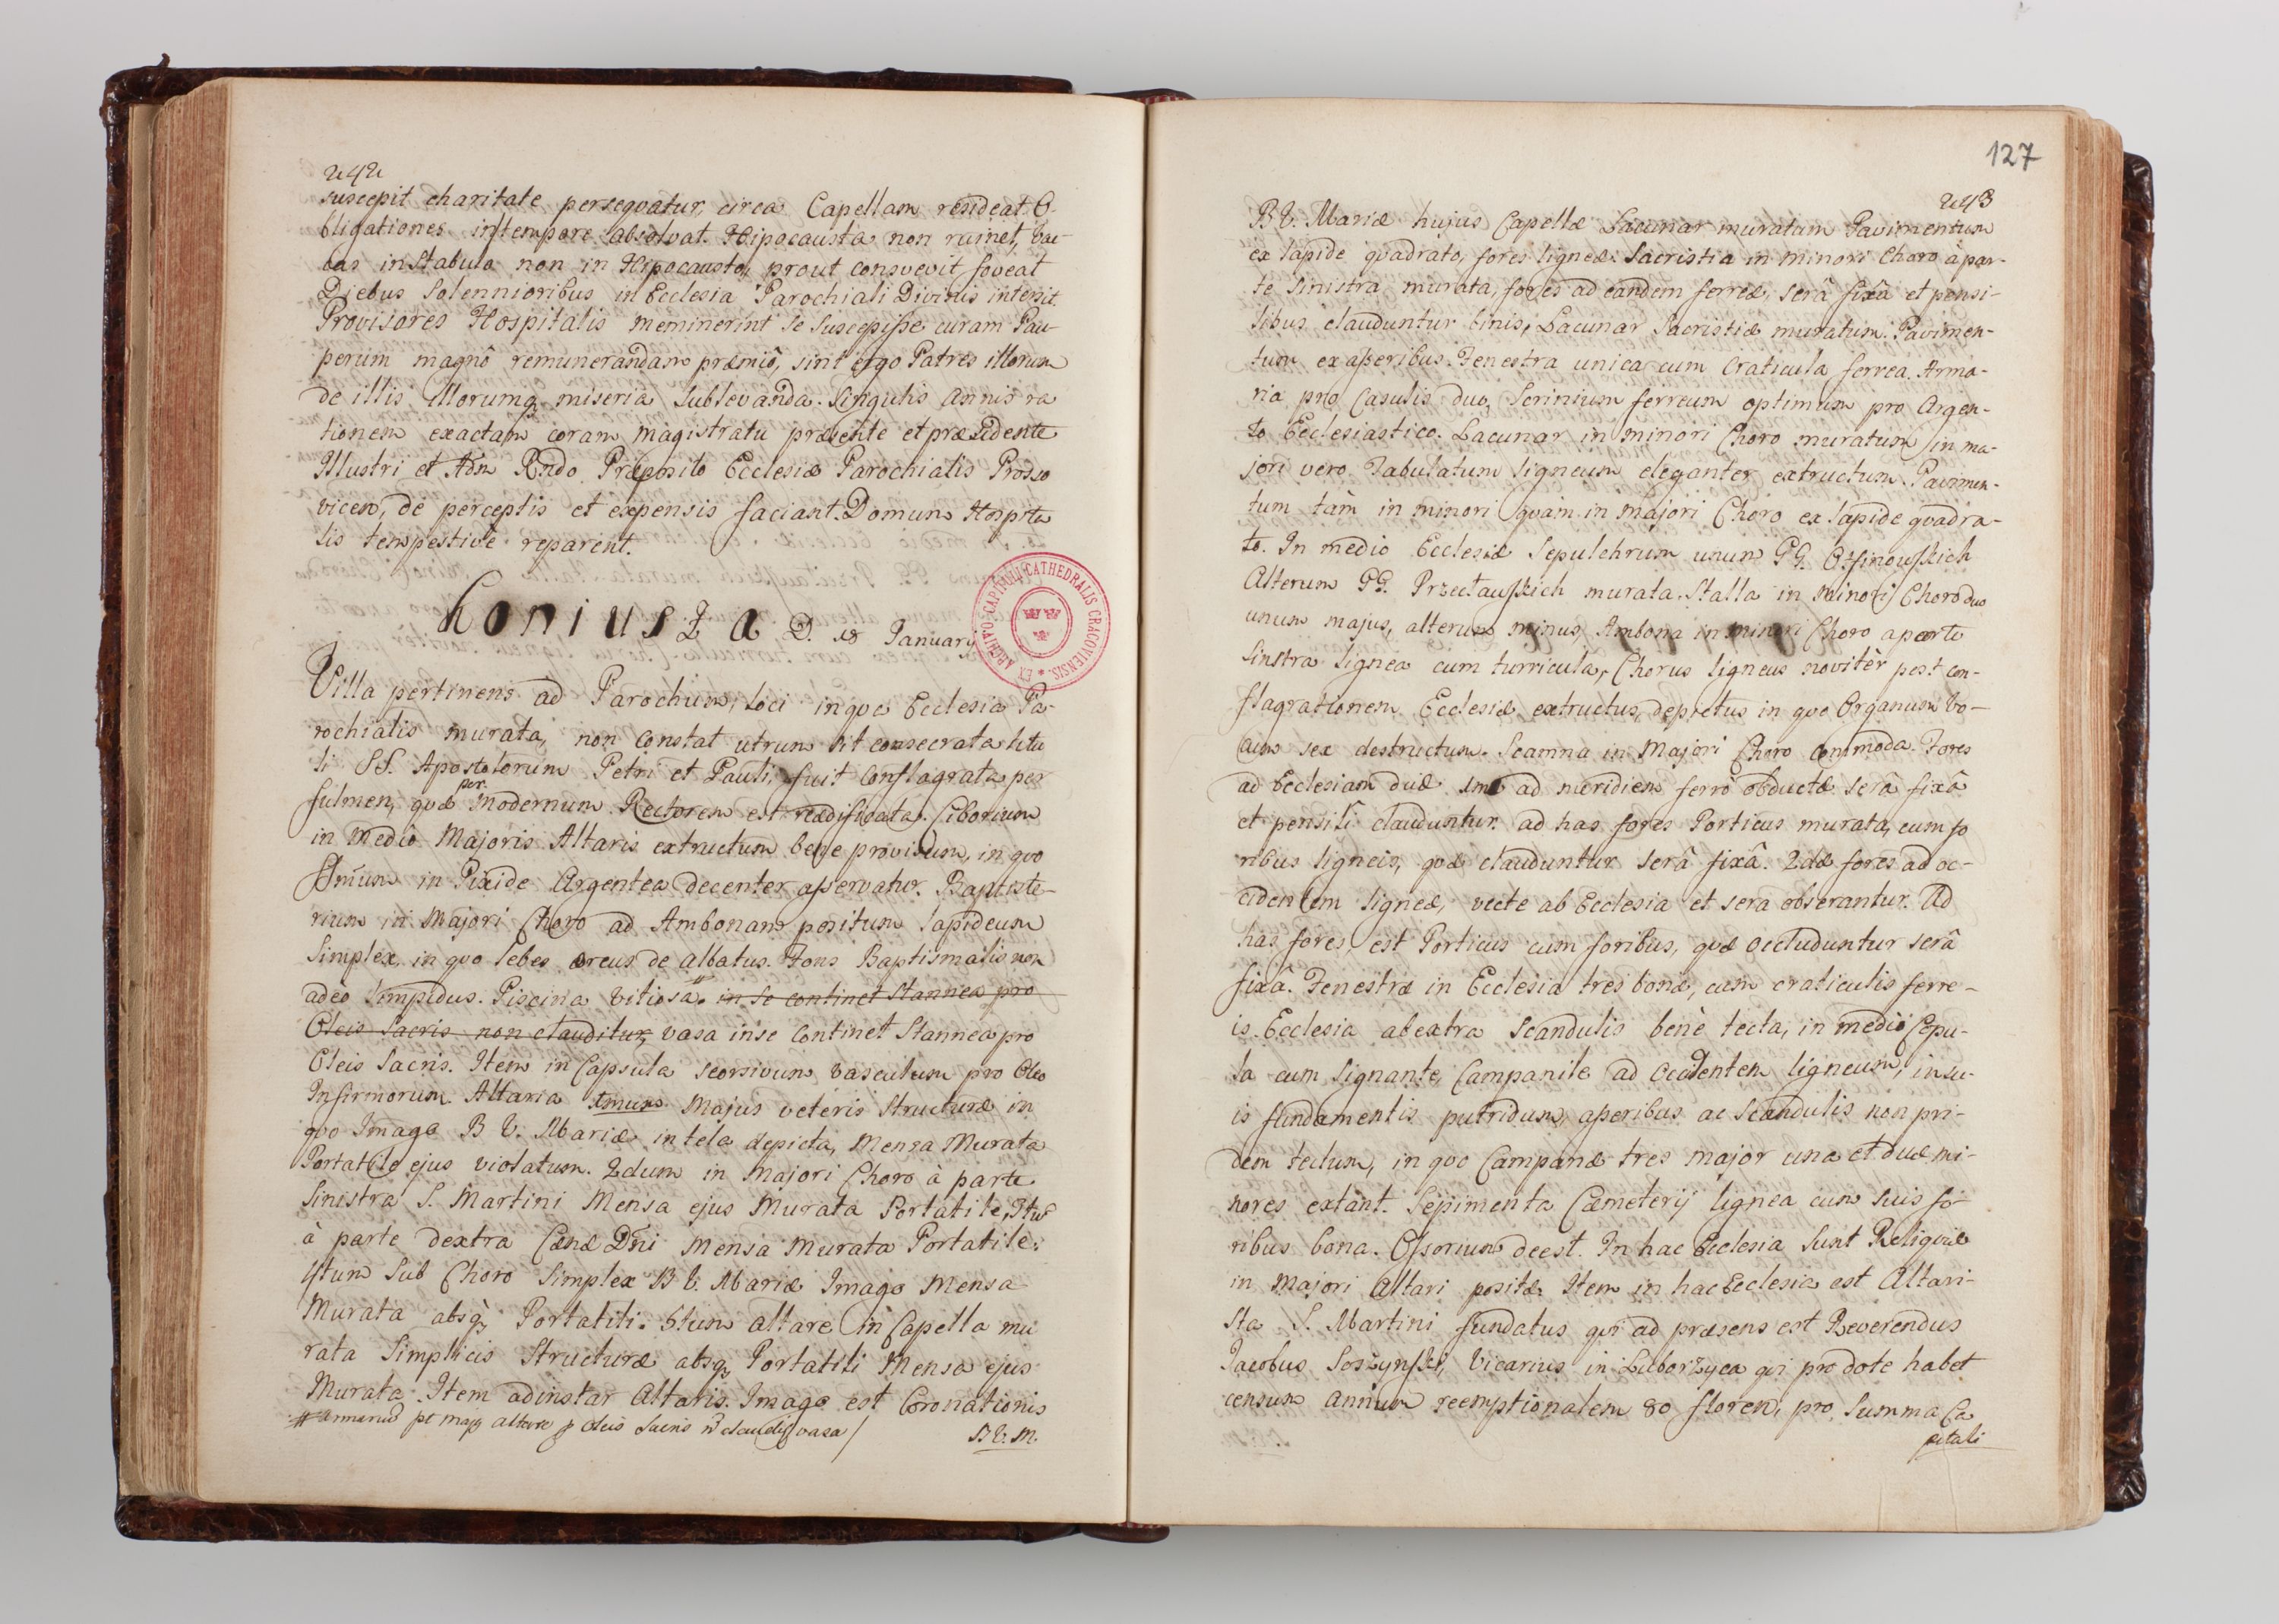 242
suscepit charitate persequatur, circa Capellam resideat. O-
bligationes in tempore absolvat. Hipocausta non ruinet, vac-
cas in Stabulo non in Hipocausto, prout consvevit foveat
Diebus Solennioribus in Ecclesia Parochiali Divinis intersit
Provisores Hospitalis meminerint se suscepisse curam Pau-
perum magnô remunerandam præmiô, sint ergo Patres illorum
de illis illorumq miseria sublevanda. Singulis annis ra
tionem exactam coram magistratu præsente et præsidente
Illustri et Adm Rndo Præposito Ecclesiæ Parochialis Prosso
vicen, de perceptis et expensis faciant. Domum Hospita
lis tempestivè reparent.
Koniusza D. 18 Januarij
EX ARCHIVO CAPITULI CATHEDRALIS CRACOVIENSIS
Villa pertinens ad Parochum, loci in qva Ecclesia Pa-
rochialis murata, non constat utrum sit consecrata titu
li SS. Apostolorum Petri et Pauli, fuit conflagrata per
fulmen, qvæ per modernum Rectorem est reædificata. Ciborium
in medio Majoris Altaris extructum bene provisum, in qvo
SSmum in Pixide Argentea decenter asservatur. Baptiste-
rium in Majori Choro ad Ambonam positum lapideum
Simplex, in qvo lebes æreus de albatus. Fons Baptismalis non
adeò limpidus. Piscina vitiosa # in se continet Stannea pro
Oleis Sacris non clauditur, vasa in se continet Stannea pro
Oleis Sacris. Item in Capsula seorsivum vasculum pro Oleo
Infirmorum. Altaria 1mum Majus veteris Structuræ in
qvo Imago B V. Mariæ in tela depicta, Mensa Murata
Portatile ejus violatum. 2dum in Majori Choro à parte
Sinistra S. Martini Mensa ejus Murata Portatile, 3tium
à parte dextra Cænæ Dni Mensa Murata Portatile.
4tum Sub Choro Simplex B V. Mariæ Imago Mensa
Murata absq Portatili. 5tum altare in Capella mu
rata Simplicis Structuræ absq Portatili Mensa ejus
Murata. Item adinstar Altaris. Imago est Coronationis
# armariu pt maj altare p Oleis Sacris n claudit vasa /
B V. M.
127
243
B V. Mariæ hujus Capellæ Lacunar muratum Pavimentum
ex lapide qvadrato, fores ligneæ. Sacristia in minori Choro à par-
te sinistra murata, fores ad eandem ferreæ, serâ fixâ et pensi-
libus clauduntur binis, Lacunar Sacristiæ muratum. Pavimen-
tum ex asseribus. Fenestra unica cum Craticula ferrea. Arma-
ria pro Casulis duo, Scrinium ferreum optimum pro Argen-
to Ecclesiastico. Lacunar in minori Choro muratum in ma-
jori vero Tabulatum ligneum eleganter extructum. Pavimen-
tum tàm in minori qvàm in majori Choro ex lapide qvadra-
to. In medio Ecclesiæ Sepulchrum unum GG.
Alterum GG. Przecławskich murata. Stalla in minori Choro duo
unum majus, alterum minus, Ambona in minori Choro a parte
sinstra lignea cum turricula, Chorus ligneus novitèr post con-
flagrationem Ecclesiæ extructus, depictus in qvo Organum vo-
cum sex destructum. Scamna in Majori Choro commoda. Fores
ad Ecclesiam duæ 1mæ ad meridiem ferrô obductæ serâ fixâ
et pensili clauduntur. ad has fores Porticus murata, cum fo
ribus ligneis, qvæ clauduntur serâ fixâ. 2dæ fores ad oc-
cidentem ligneæ, vecte ab Ecclesia et sera obserantur. Ad
has fores, est Porticus cum foribus, qvæ occluduntur serâ
fixâ. Fenestræ in Ecclesia tres bonæ, cum craticulis ferre-
is. Ecclesia ab extra scandulis benè tecta, in mediô Copu-
la cum Signante, Campanile ad Occidentem ligneum, in su-
is fundamentis putridum, asseribus ac Scandulis non pri-
dem tectum, in qvo Campanæ tres major una et duæ mi-
nores extant. Sepimenta Cæmeterij lignea cum suis fo-
ribus bona. Ossorium deest. In hac Ecclesia sunt Reliqviæ
in Majori Altari positæ Item in hac Ecclesia est Altari-
sta S. Martini fundatus qvi ad præsens est Reverendus
Jacobus Soszynski, Vicarius in Luborzyca qvi pro dote habet
censum annuum reemptionalem 80 floren, pro Summa Ca
pitali